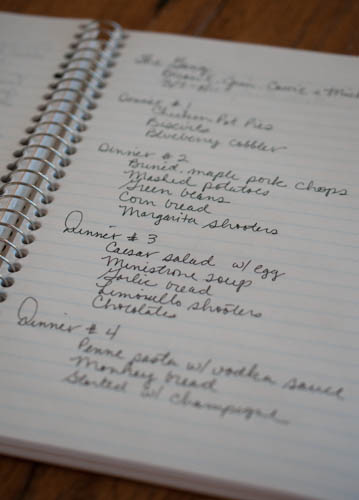 The Gang
Dinner # 1
Chicken Pot Pies
Biscuits
Blueberry cobbler
Dinner # 2
Brined maple pork chops
Mashed potatoes
Green beans
Corn bread
Margarita shooters
Dinner # 3
Caesar salad w/ egg
Minestrone soup
Garlic bread
Limoncello shooters
Chocolates
Dinner # 4
Penne pasta w/ vodka sauce
Monkey bread
Started w/ champagne